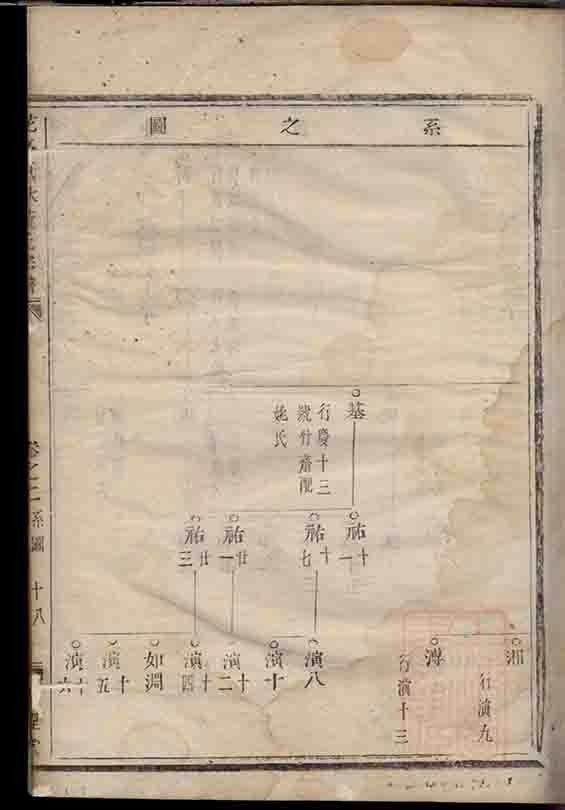 系之圖
基
行慶十三
號竹齋配
姚氏
祐十一
祐十七
祐廿一
祐廿三
湘
行演九
溥
行演十三
演八
演十
演十二
演十四
如淵
演十五
演十六
卷之二
系圖
十八